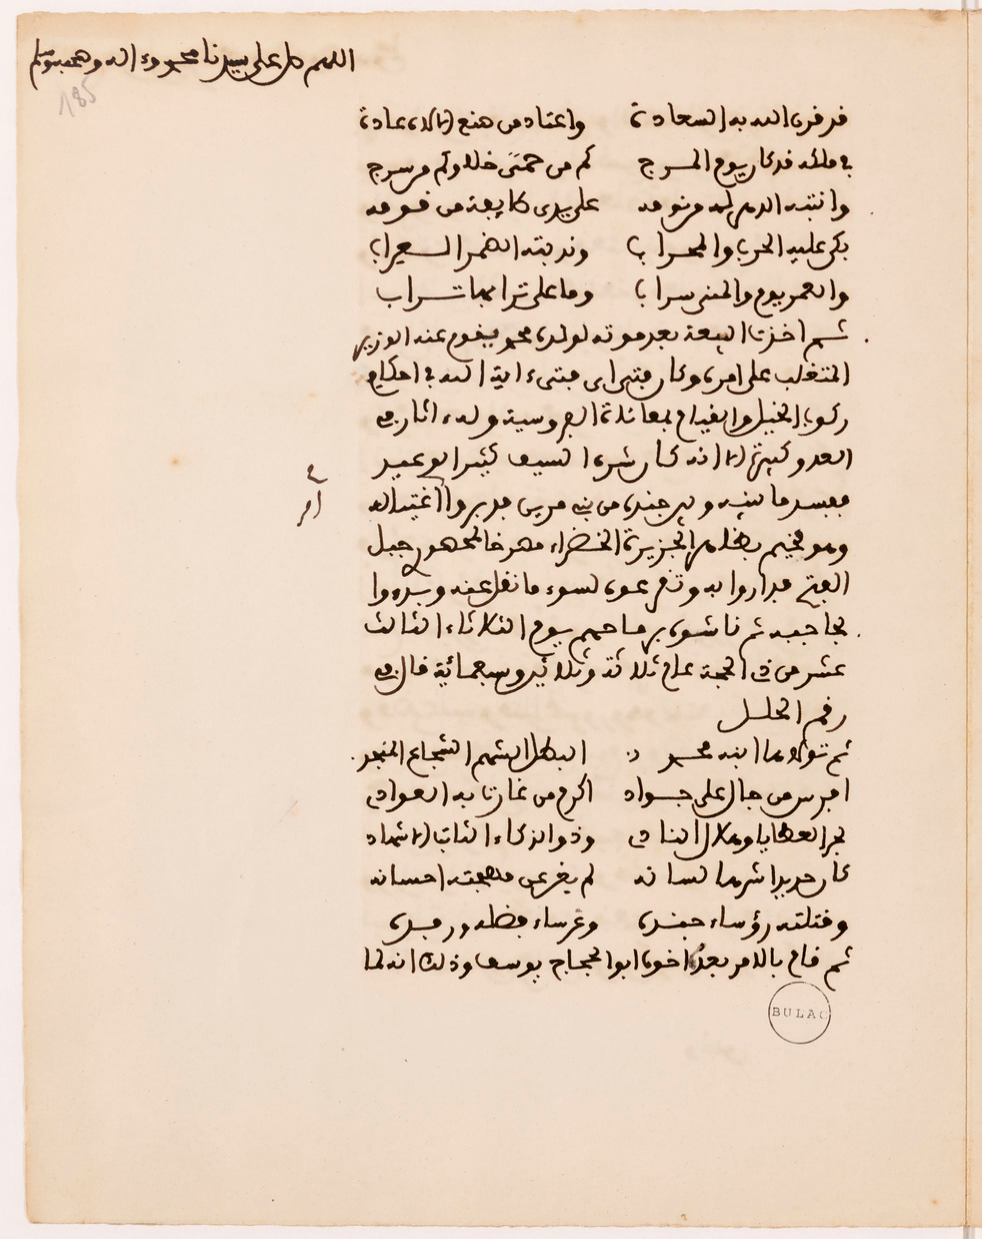 اللهم صل على سيدنا محمد وءاله وصحبه وسلم
185
قد قرن الله به السعادة واعتاد من صنع الإلاه عادة
في ملكه قد كان يوم المرج كم من حمى خلا وكم من سرج
وانتبه الدهر له من نومه على يدي طايفة من قومه
بكى عليه الحرب والمحراب وندبته الضمر العراب
والعمر يوم والمنى سراب وما على ترابها تراب
ثم اخذت البيعة بعد موته لولده محمد يقوم عنه الوزير
المتغلب على امره وكان فتى اي فتى ءاية الله في احكام
ركوب الخيل والقيام بمعاناة الفروسية وله ءاثار في
العدو كبيرة إلا انه كان شره السيف كثير الوعيد
ففسد ما بينه وبين جنده من بني مرين فدبروا اغتياله
وهو مخيم بظاهر الجزيرة الخضراء مصرخا لمحصور جبل
الفتح فداروا به وتنمر عوه لسوء ما نقل عنه وبدءوا
بحاجبه ثم ناشوه برماحهم يوم الثلاثاء الثالث
عشر من ذي الحجة عام ثلاثة وثلاثين وسبعمائة قال في
رقم الحلل
ثم تولاها ابنه محمد البطل الشهم الشجاع المنجد
افرس من جال على جواد اكرم من غارت به العوادي
بحر العطايا وهلال النادي وذو الذكاء الثاقب
كان حديدا شرها لسانه لم يغن عن مهجته احسانه
وقتلته رؤساء جنده وغرساء فضله ورفده
ثم قام بالامر بعده اخوه ابو الحجاج يوسف وذلك انه لما
BULAC